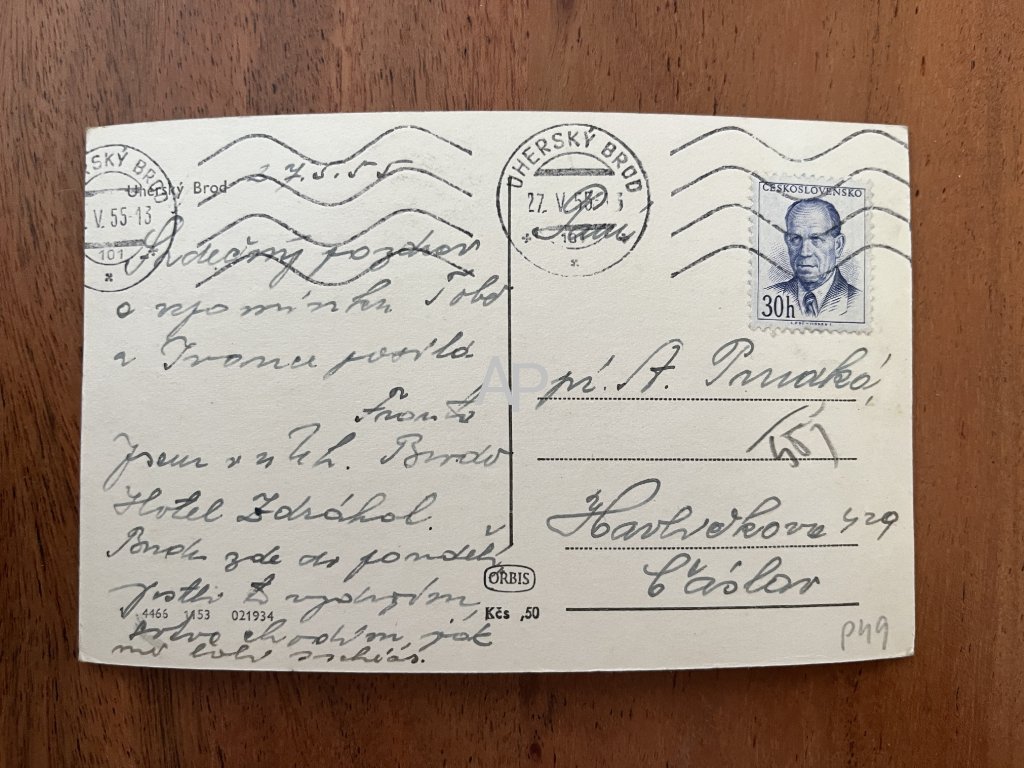 UHERSKÝ BROD
27. V. 55-13
101
ČESKOSLOVENSKO
30h
RSKÝ BROD
V. 55-13
101
Uherský Brod
27.5.55
Srdečný pozdrav
a vzpomínku Tobě
a Ivance posílá
Franta
Jsem v Uh. Brodě
Hotel Zdráhal.
Budu zde do pondělí,
jestli to vydržím,
chodím, jak
mě bolí
4466 1153 021934
ORBIS
Kčs ,50
AP
pí. A.
Havlíčkova 429
Čáslav
P49